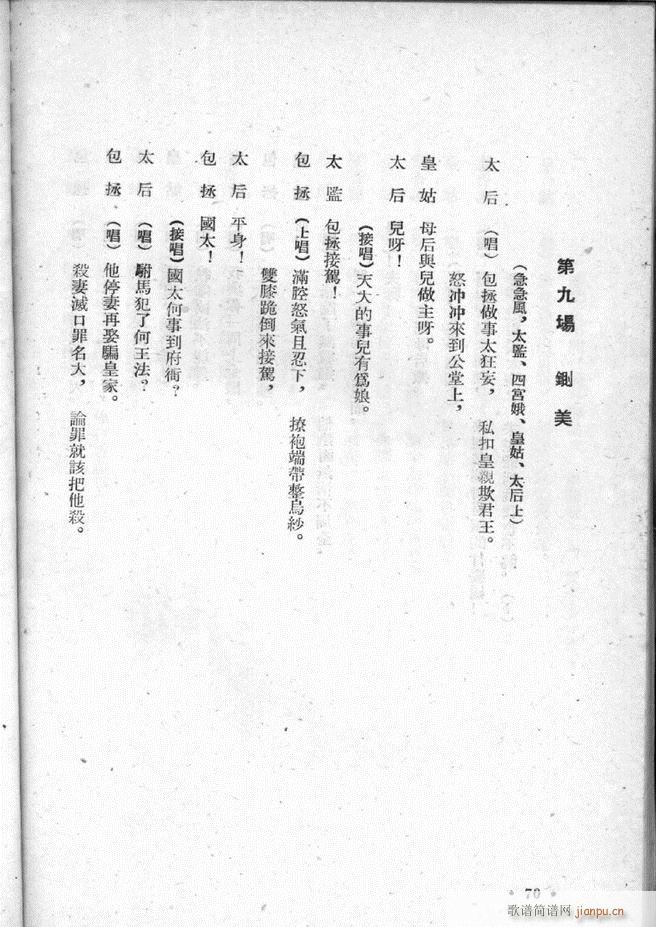 第九場　鍘美
（急急風，太監、四宮娥、皇姑、太后上）
太后　（唱）包拯做事太狂妄，　私扣皇親欺君王。
怒沖沖來到公堂上，
皇姑　母后與兒做主呀。
太后　兒呀！
（接唱）天大的事兒有爲娘。
太監　包拯接駕！
包拯　（上唱）滿腔怒氣且忍下，　撩袍端帶整烏紗。
雙膝跪倒來接駕，
太后　平身！
包拯　國太！
（接唱）國太何事到府衙？
太后　（唱）駙馬犯了何王法？
包拯　（唱）他停妻再娶騙皇家。
殺妻滅口罪名大，　論罪就該把他殺。
· 70 ·
歌谱简谱网 jianpu.cn